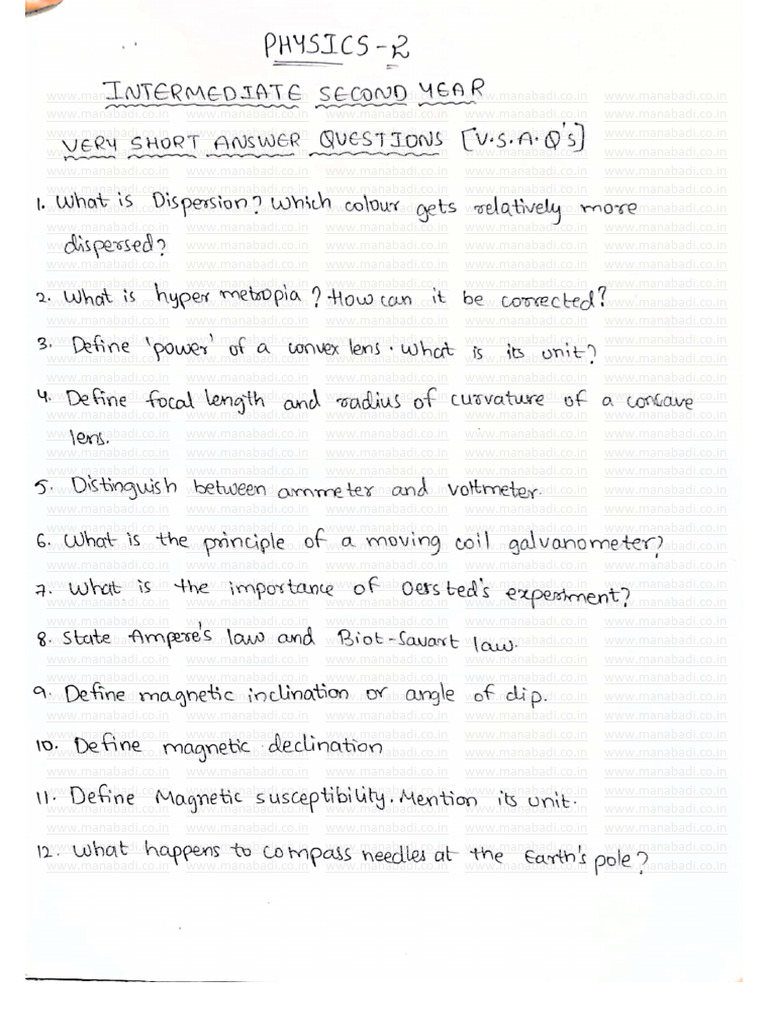 PHYSICS-2
INTERMEDIATE SECOND YEAR
VERY SHORT ANSWER QUESTIONS [V.S.A.Q's]
1. What is Dispersion? Which colour gets relatively more
dispersed?
2. What is hyper metropia? How can it be corrected?
3. Define 'power' of a convex lens. What is its unit?
4. Define focal length and radius of curvature of a concave
lens.
5. Distinguish between ammeter and voltmeter.
6. What is the principle of a moving coil galvanometer?
7. What is the importance of Oersted's experiment?
8. State Ampere's law and Biot-Savart law.
9. Define magnetic inclination or angle of dip.
10. Define magnetic declination
11. Define Magnetic susceptibility. Mention its unit.
12. What happens to compass needles at the Earth's pole?
www.manabadi.co.in